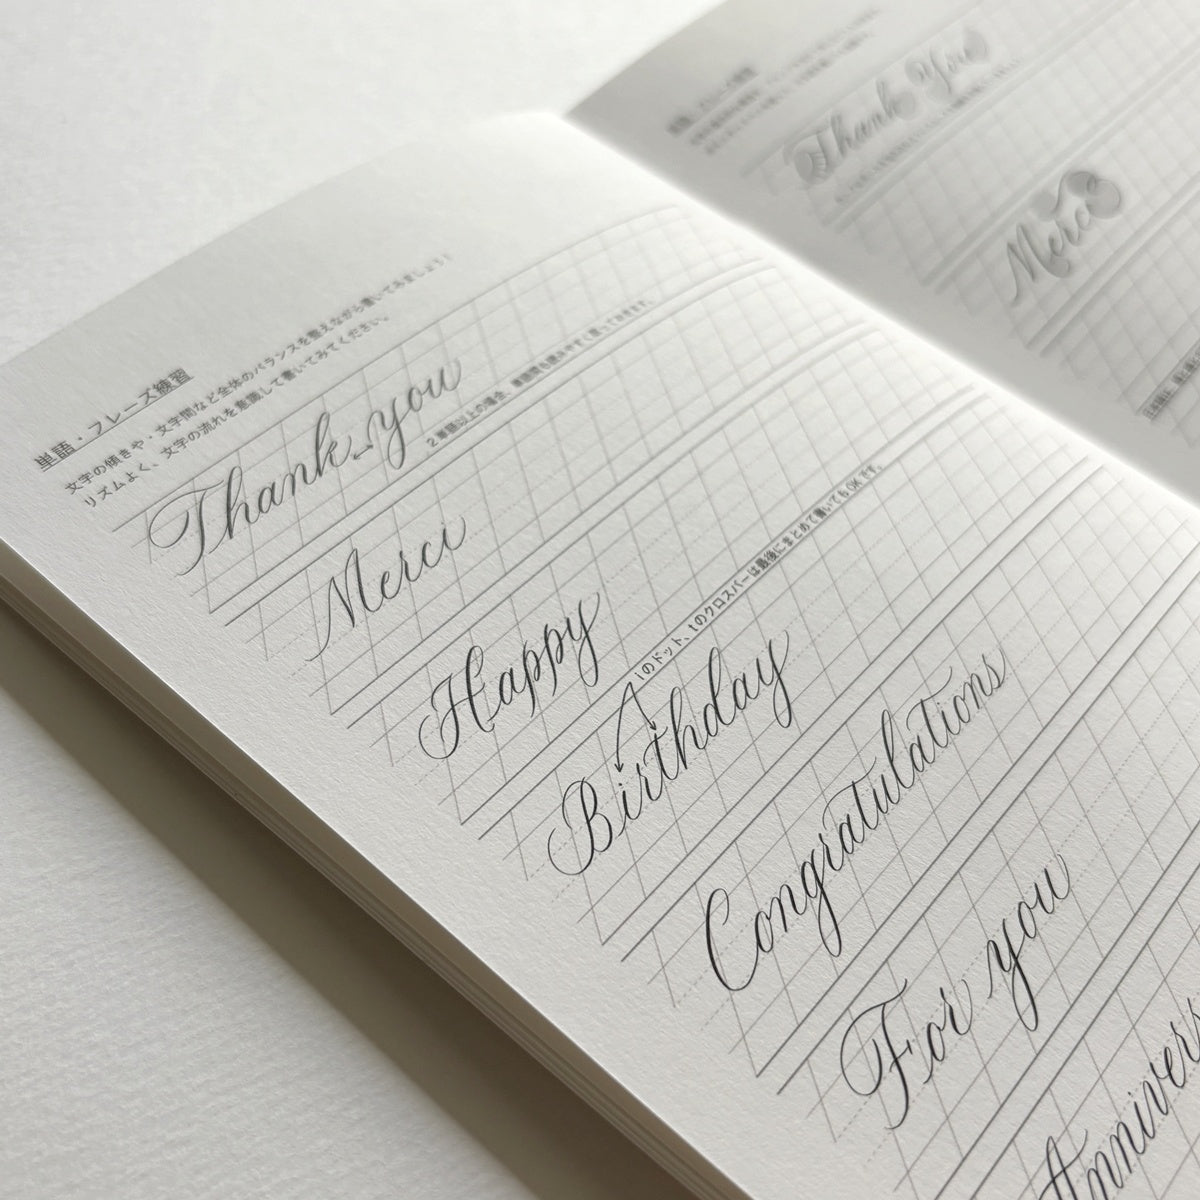 単語・フレーズ練習
文字の傾きや・文字間など全体のバランスを整えながら書いてみましょう!
リズムよく、文字の流れを意識して書いてみてください。
Thank you
2単語以上の場合、単語間も読みやすく整っております。
Merci
Happy
iのドット、tのクロスバーは最後にまとめて書いてもOKです。
Birthday
Congratulations
For you
Annivers
Thank You
Merci